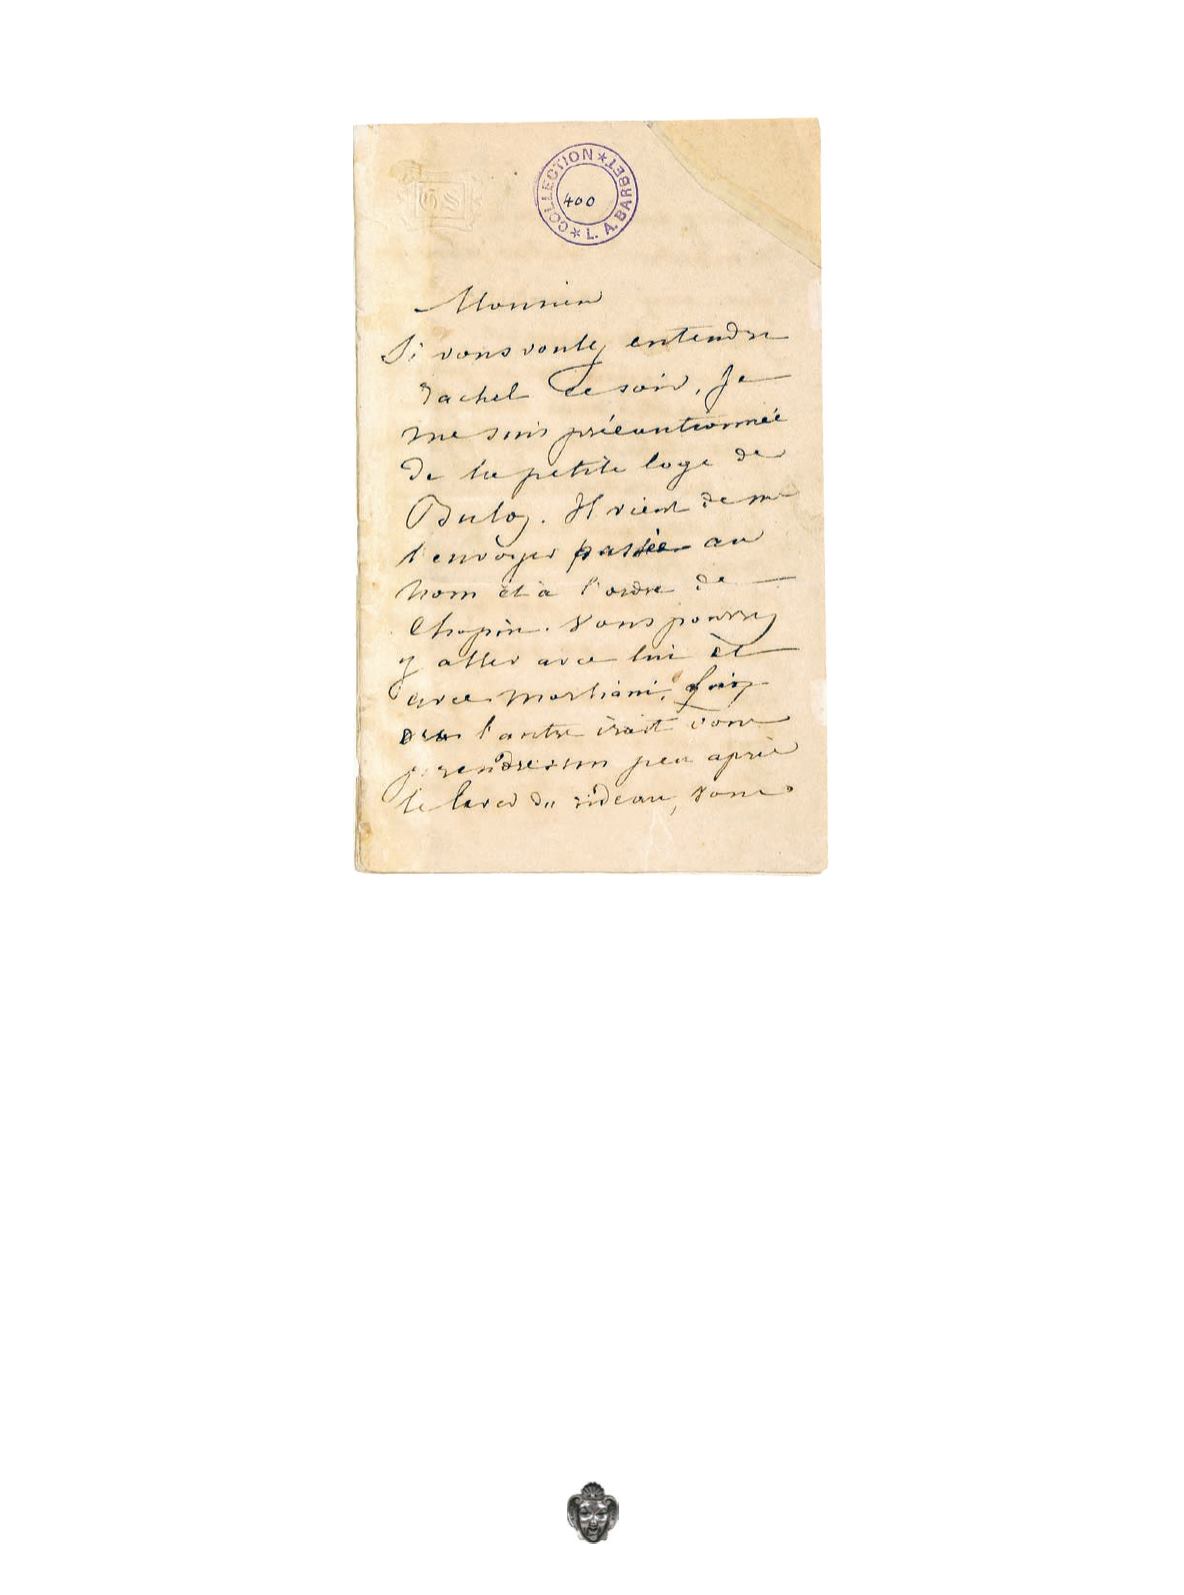 COLLECTION * L. A. BARBET *
400
GS
Monsieur
Si vous voulez entendre
rachel ce soir, je
me suis précautionnée
de la petite loge de
Buloz. Il vient de me
l'envoyer au
nom et à l'ordre de
Chopin. Vous pourrez
y aller avec lui et
avec Marliani,
l'autre irait vous
prendre un peu après
le lever du rideau, vous